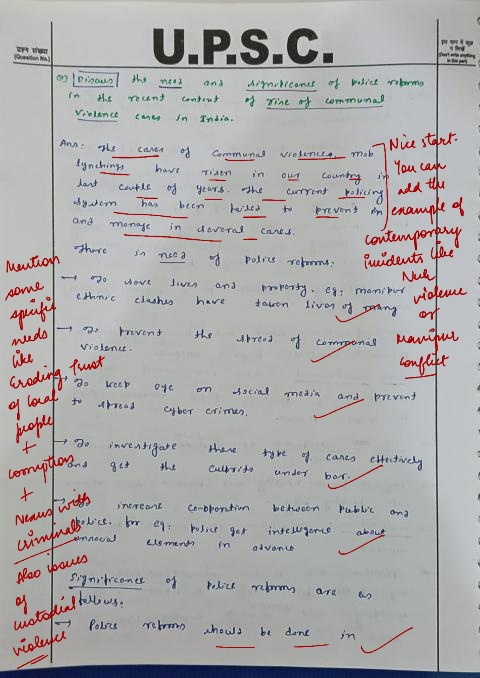 U.P.S.C.
प्रश्न संख्या
(Question No.)
(Don't write anything
in this part)
Q) Discuss the need and significance of police reforms
in the recent context of rise of communal
violence cases in India.
Ans: The cases of communal violence, mob
lynchings have risen in our country in
last couple of years. The current policing
system has been failed to prevent
and manage in several cases.
There is need of police reforms:
→ To save lives and property. eg: manipur
ethnic clashes have taken lives of many
→ To prevent the spread of communal
violence.
→ To keep eye on social media and prevent
to spread cyber crimes.
→ To investigate these type of cases effectively
and get the culprits under bar.
→ To increase cooperation between public and
police. for eg: police get intelligence about
unsocial elements in advance
Significance of police reforms are as
follows:
→ Police reforms should be done in
Nice start.
You can
add the
example of
contemporary
incidents like
Nuh
violence
or
Manipur
conflict
Mention
some
specific
needs
like
Eroding Trust
of local
people
+
corruption
+
Nexus with
criminals
Also issues
of
custodial
violence